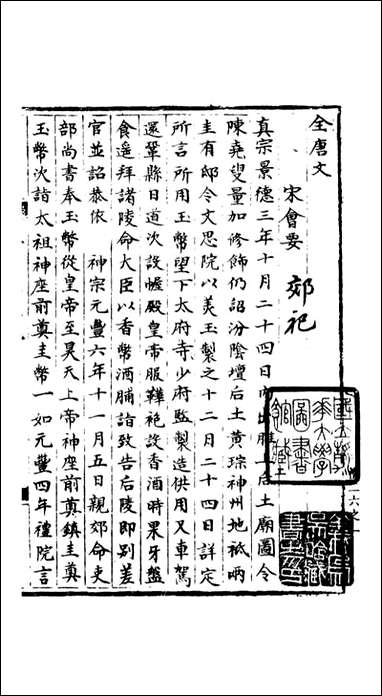 全唐文
宋會要
郊祀
真宗景德三年十月二十四日內出脽上后土廟圖令
陳堯叟量加修飾仍詔汾陰壇后土黃琮神州地祇兩
圭有邸令文思院以美玉製之十二月二十四日詳定
所言所用玉幣望下太府寺少府監製造供用又車駕
還鞏縣日道次設幄殿皇帝服鞾袍設香酒時果牙盤
食遥拜諸陵命大臣以香幣酒脯詣致告后陵即别差
官並詔恭依 神宗元豐六年十一月五日親郊命吏
部尚書奉玉幣從皇帝至昊天上帝神座前奠鎮圭奠
玉幣次詣太祖神座前奠圭幣一如元豐四年禮院言
國立清
華大學
圖書
館藏